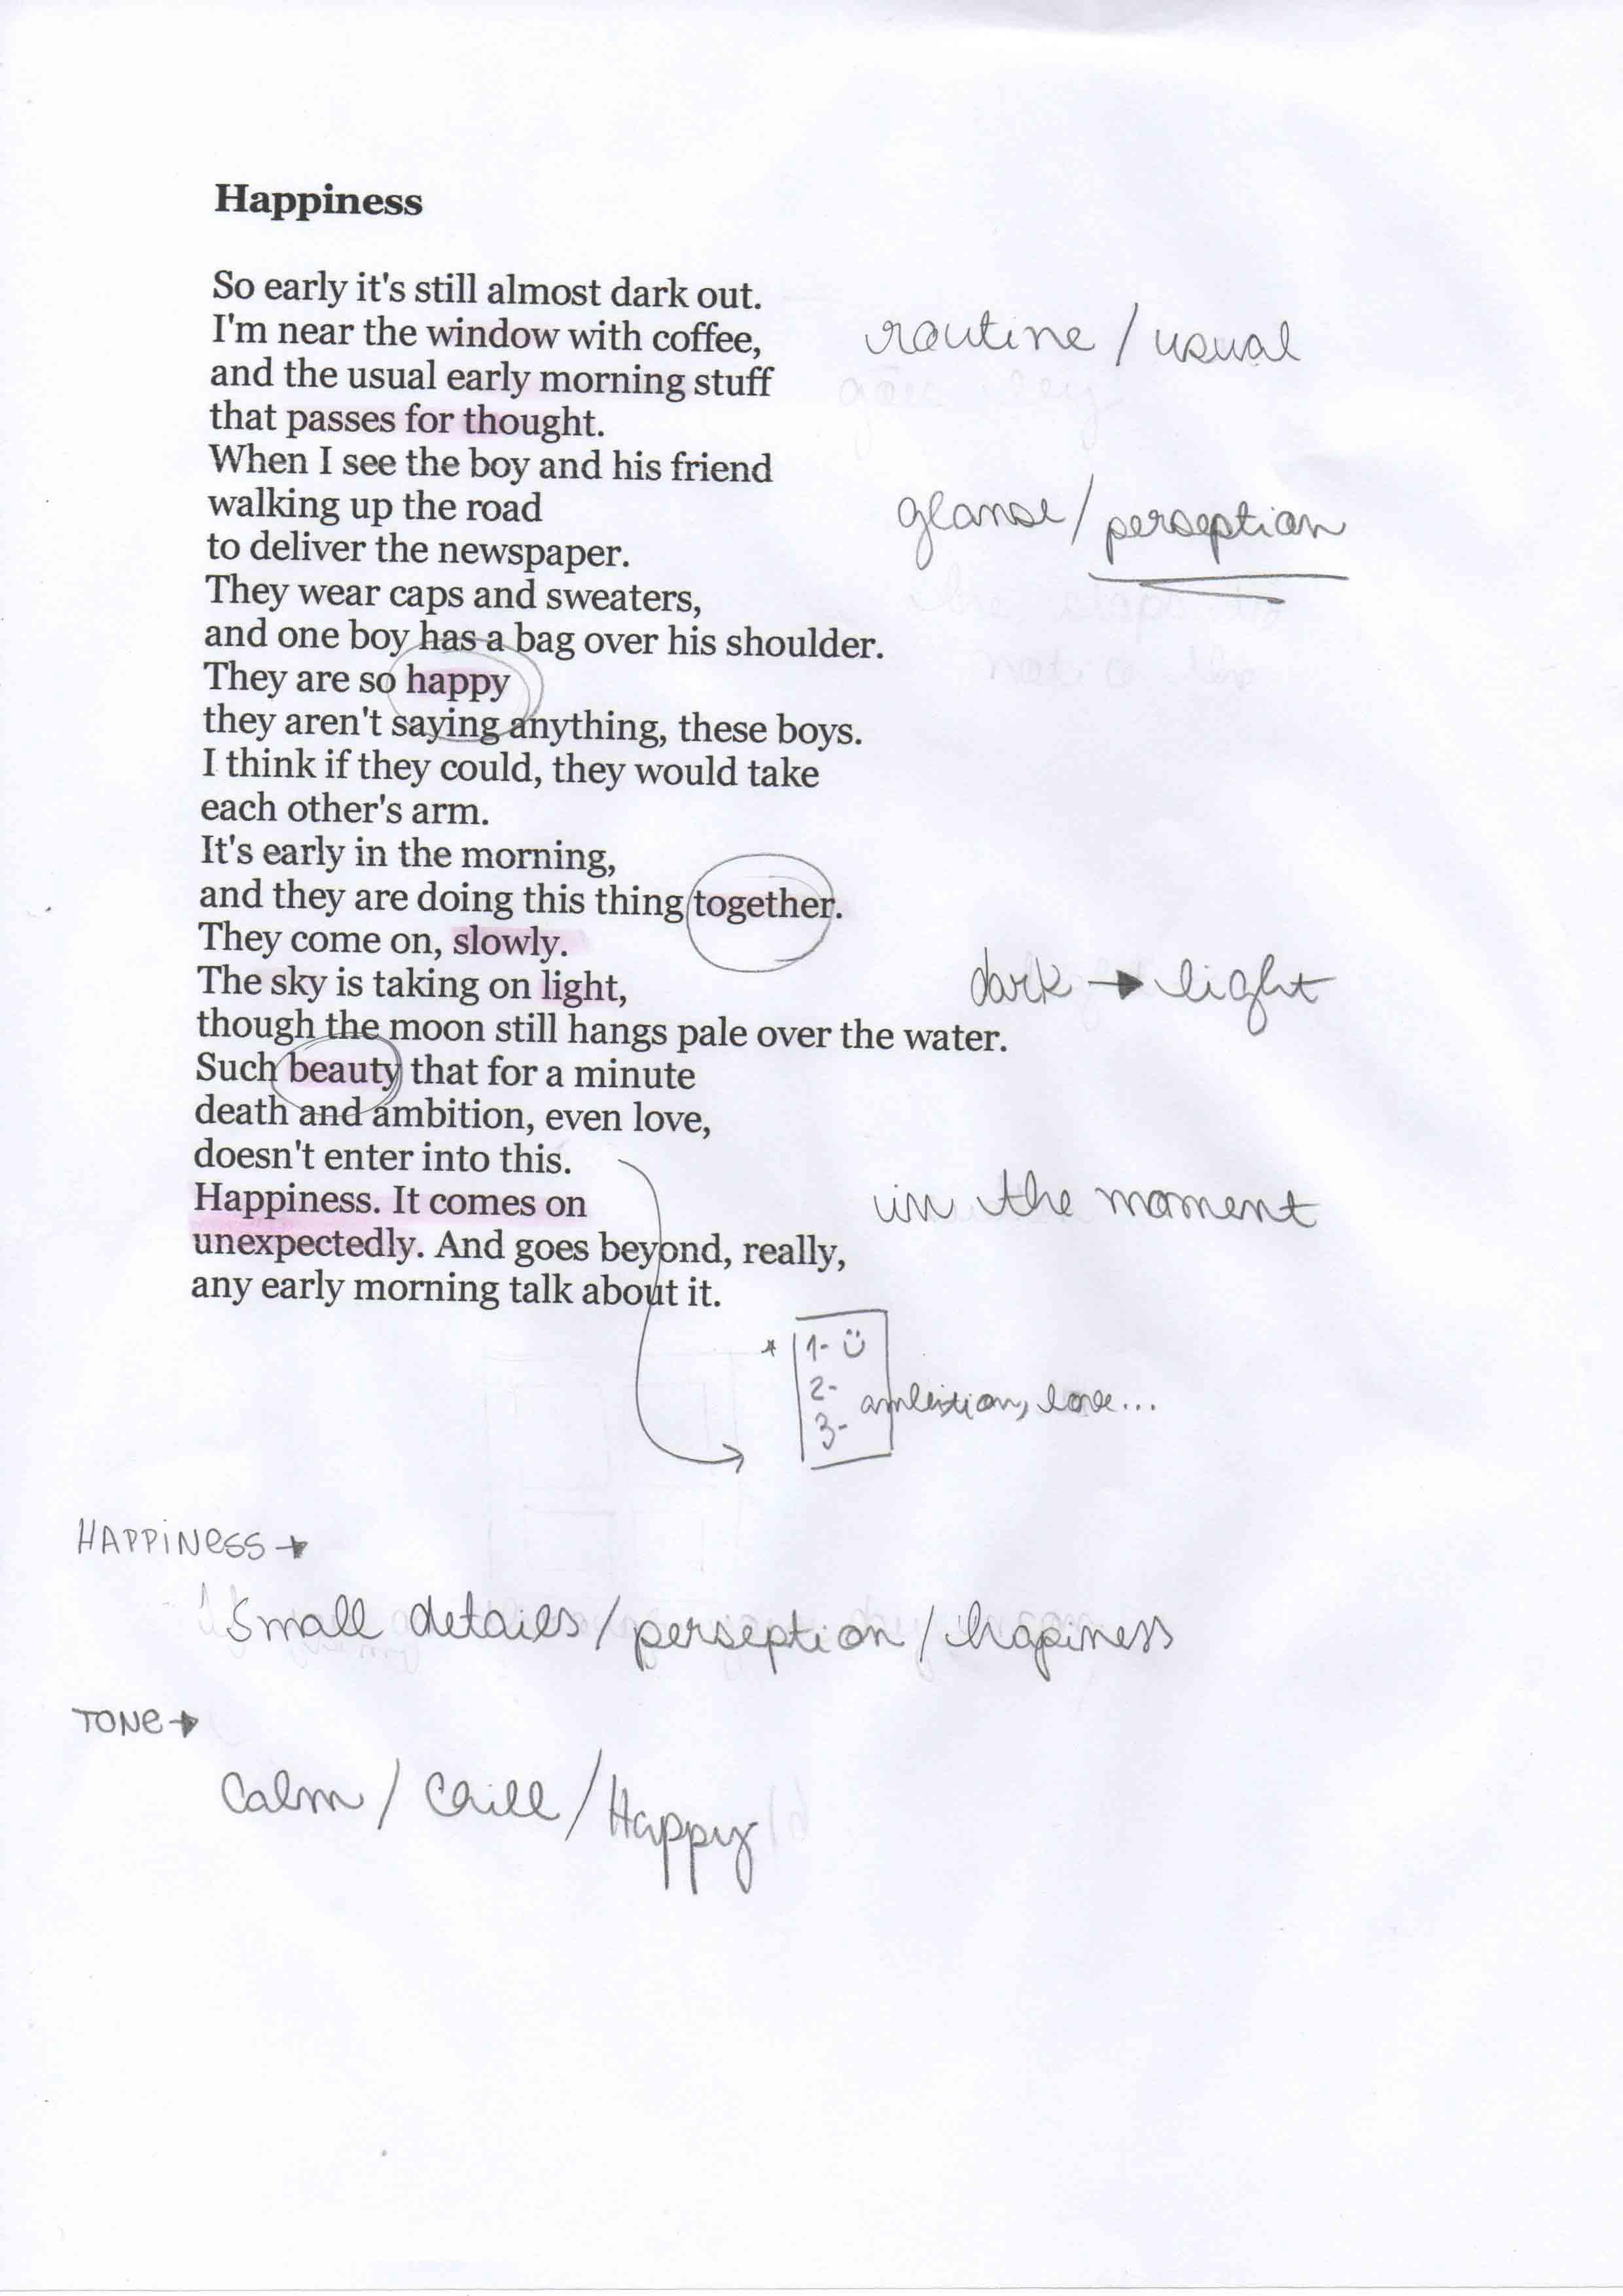 Happiness
So early it's still almost dark out.
I'm near the window with coffee,
routine / usual
and the usual early morning stuff
that passes for thought.
When I see the boy and his friend
walking up the road
glanse / perseption
to deliver the newspaper.
They wear caps and sweaters,
and one boy has a bag over his shoulder.
They are so happy
they aren't saying anything, these boys.
I think if they could, they would take
each other's arm.
It's early in the morning,
and they are doing this thing together.
They come on, slowly.
The sky is taking on light,
dark → light
though the moon still hangs pale over the water.
Such beauty that for a minute
death and ambition, even love,
doesn't enter into this.
Happiness. It comes on
in the moment
unexpectedly. And goes beyond, really,
any early morning talk about it.
* 1- ☺
2-
ambition, love...
3-
HAPPINESS →
Small details / perseption / hapiness
TONE →
Calm / Chill / Happy